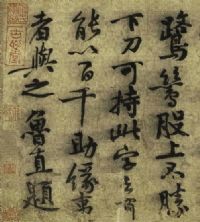 鷺鷥股上不勝
下刀可持此字
能以百千助緣
者與之魯直題